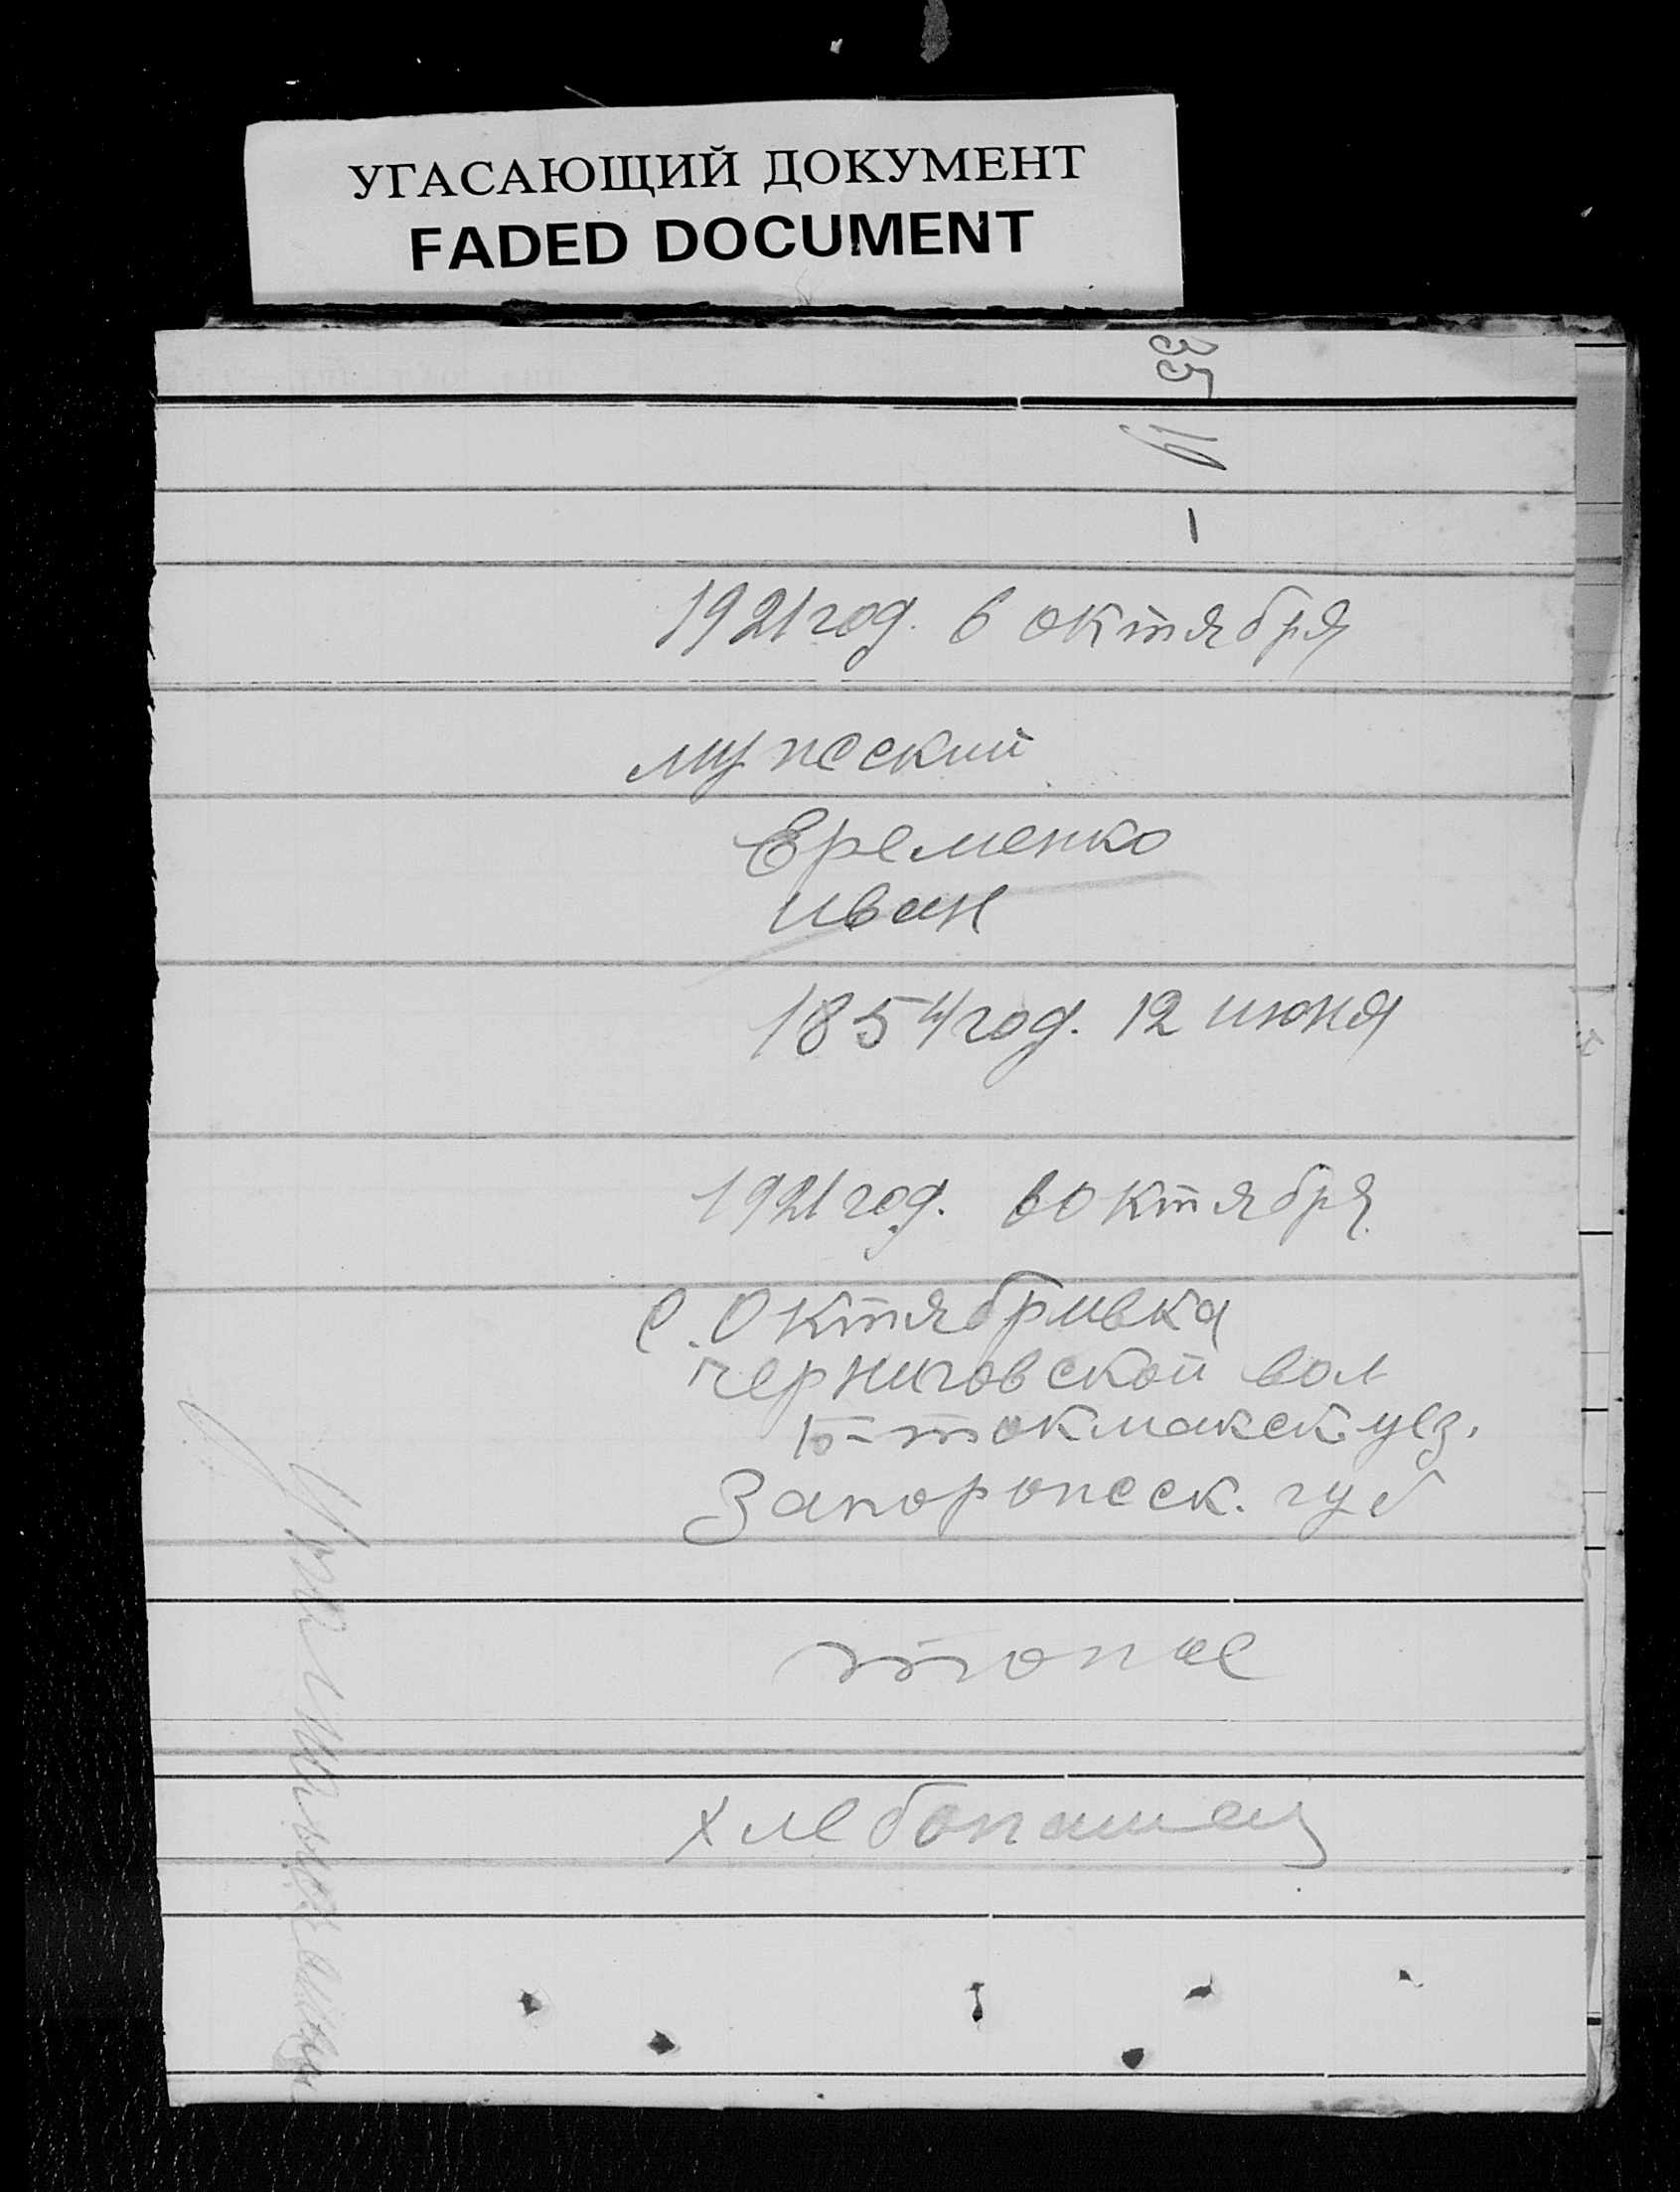 УГАСАЮЩИЙ ДОКУМЕНТ
FADED DOCUMENT
35
1921 год. 6 октября
мужский
Еременко
иван
1854 год. 12 июня
1921 год. 6 октября
с. Октябривка
черниговской вол
Б-токмакск. уез.
Запорожск. губ
тоже
хлебопашец